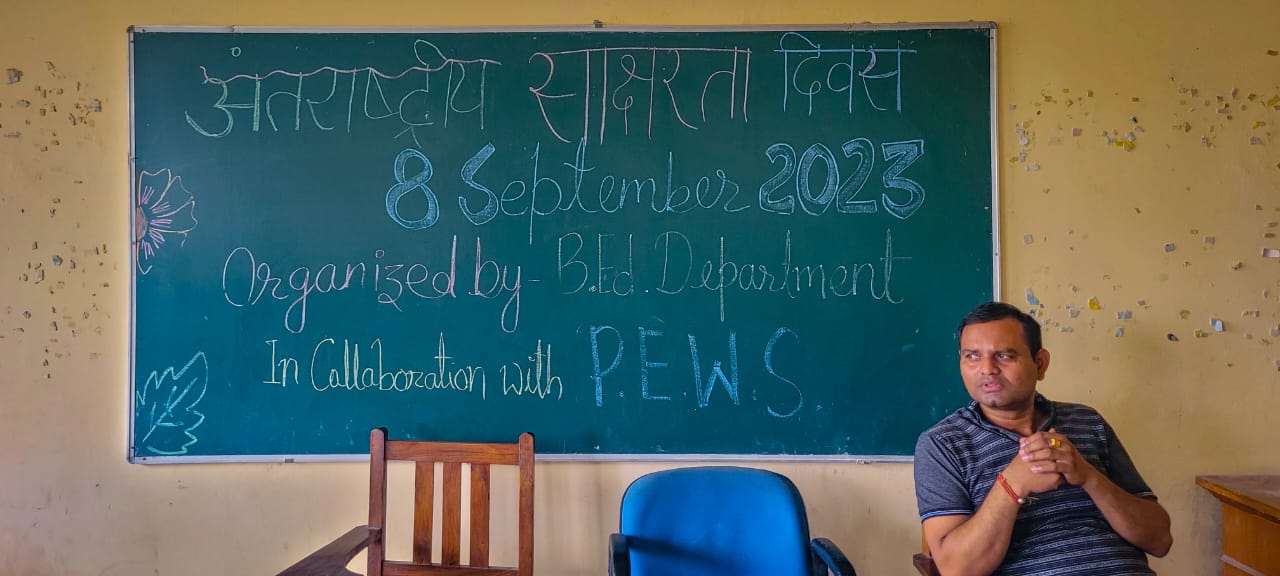 अंतराष्ट्रीय साक्षरता दिवस
8 September 2023
Organized by - B.Ed. Department
In Callaboration with P.E.W.S.